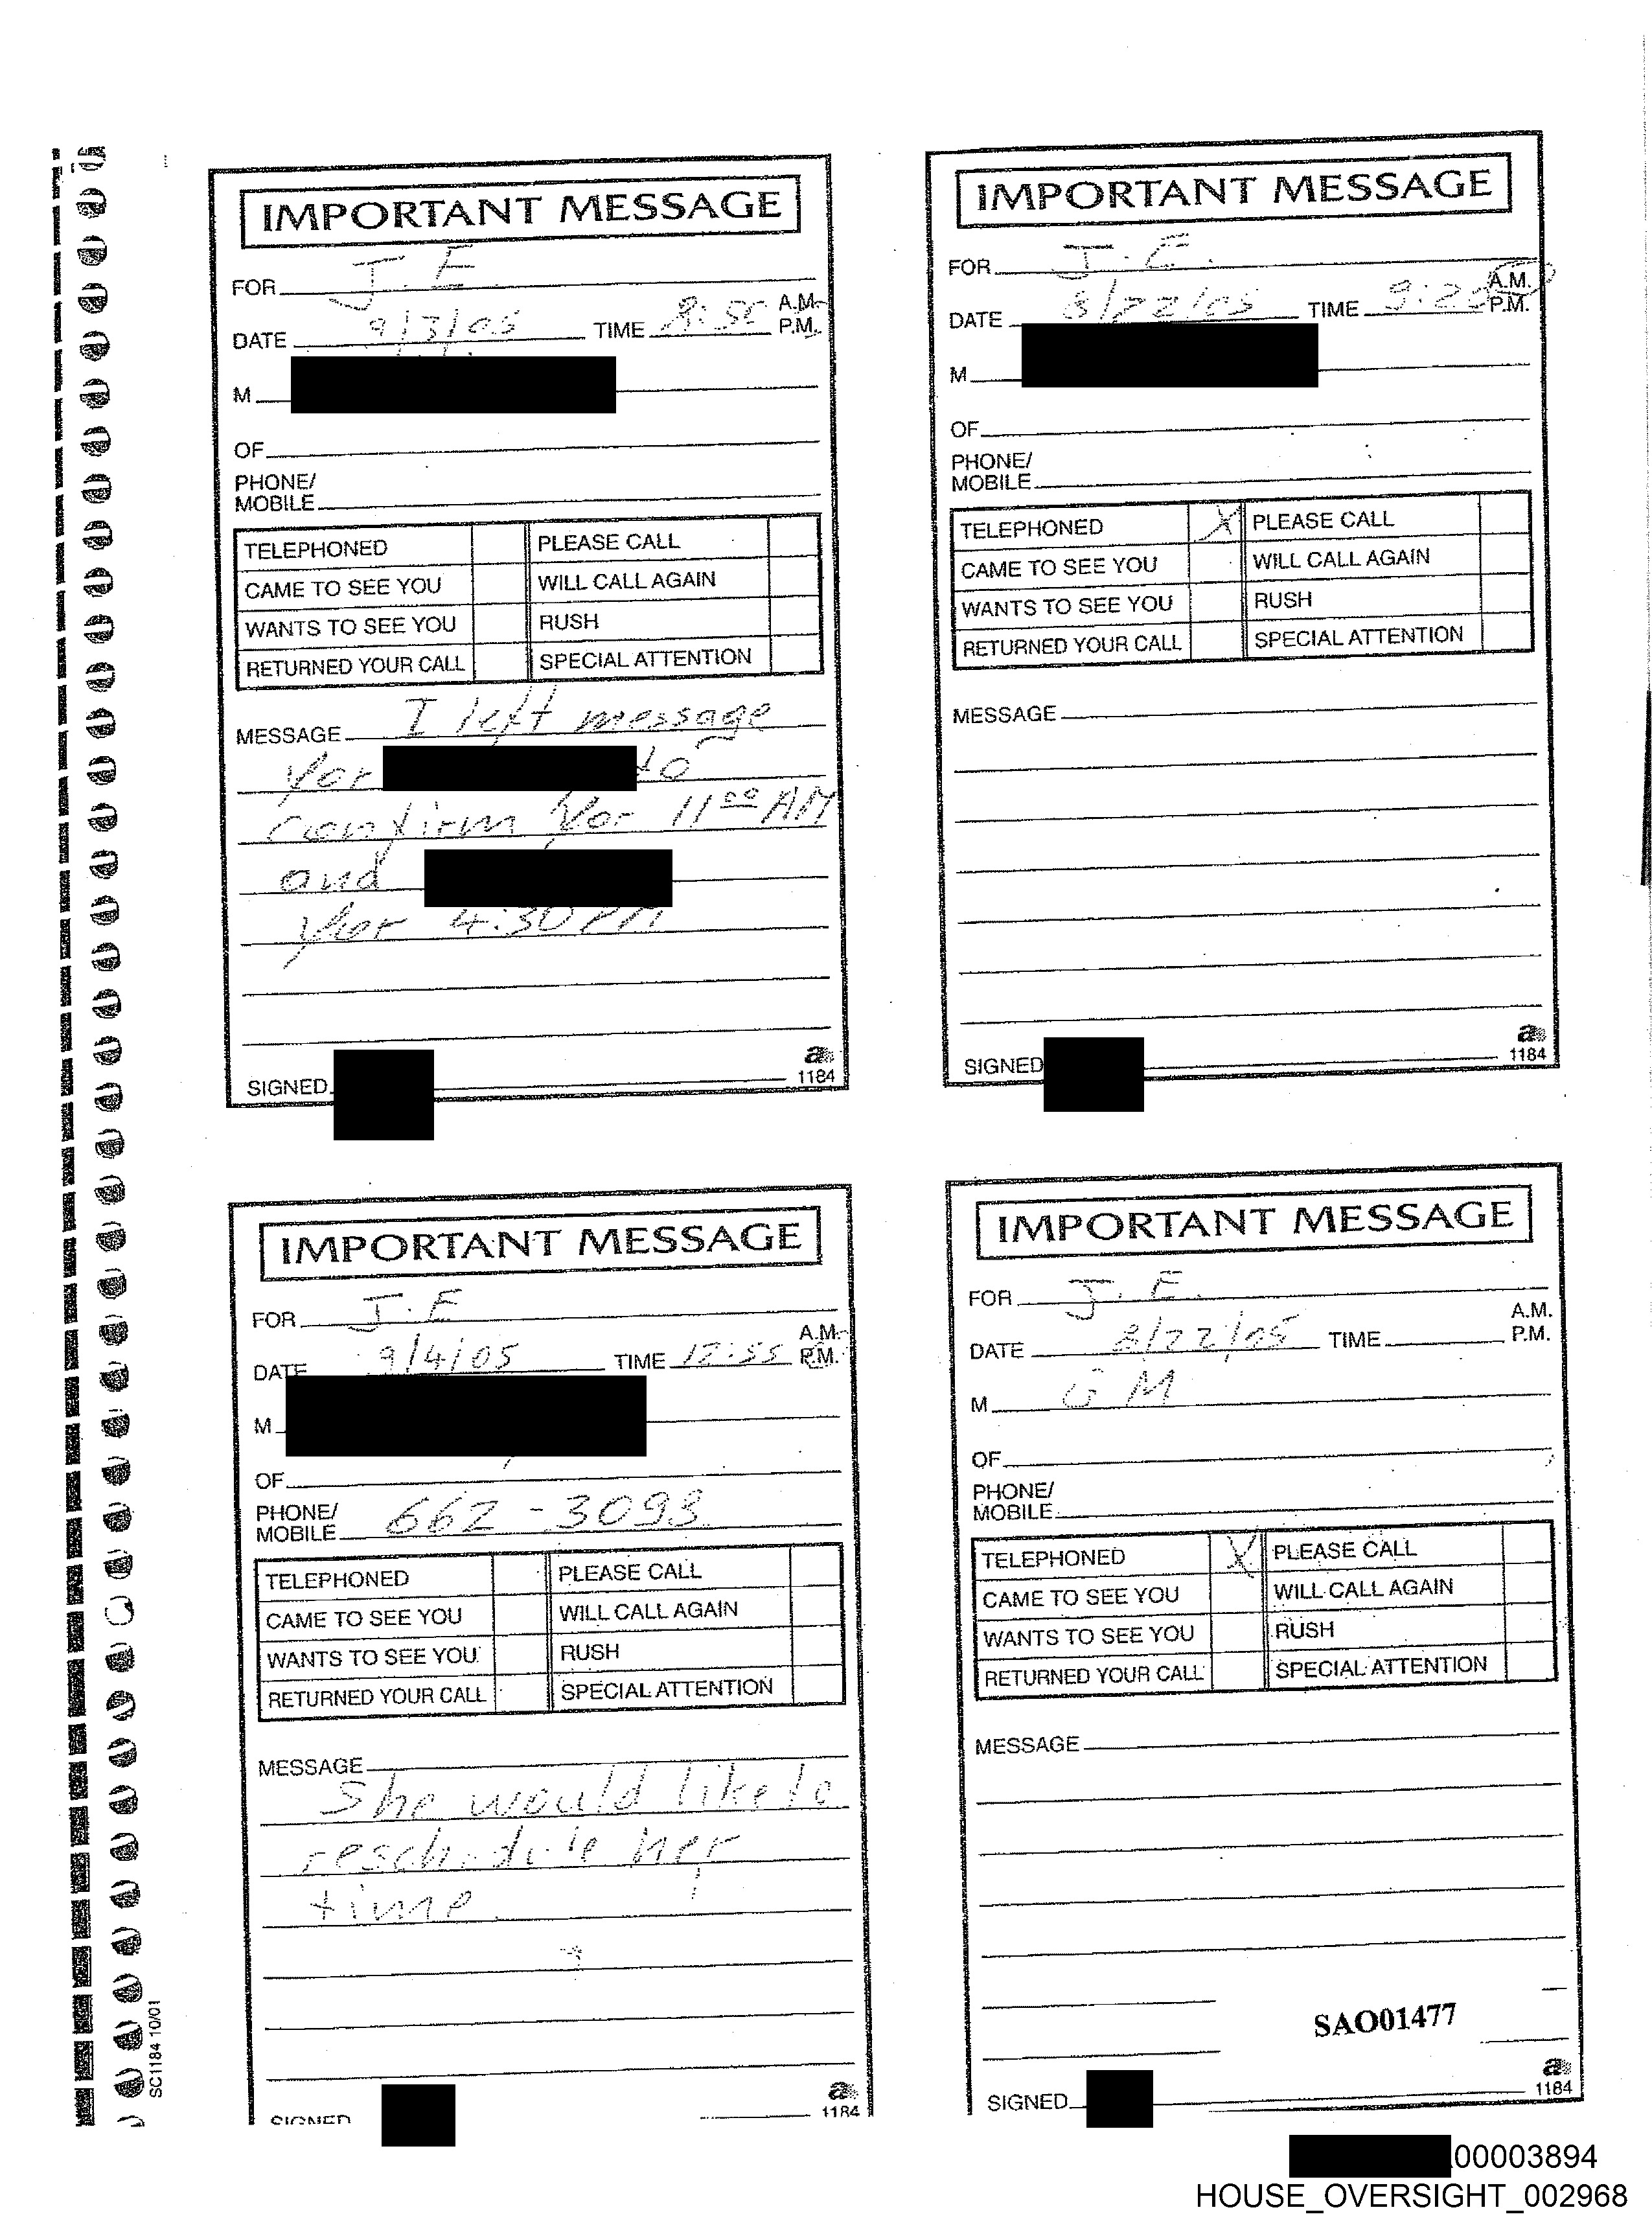 IMPORTANT MESSAGE
FOR J.E.
DATE 9/3/05 TIME 8:50 A.M. P.M.
M
OF
PHONE/
MOBILE
TELEPHONED PLEASE CALL
CAME TO SEE YOU WILL CALL AGAIN
WANTS TO SEE YOU RUSH
RETURNED YOUR CALL SPECIAL ATTENTION
MESSAGE I left message
for to
confirm for 11 00 AM
and
for 4:30 PM
SIGNED
a
1184
IMPORTANT MESSAGE
FOR J.E.
DATE 8/22/05 TIME A.M. P.M.
M
OF
PHONE/
MOBILE
TELEPHONED X PLEASE CALL
CAME TO SEE YOU WILL CALL AGAIN
WANTS TO SEE YOU RUSH
RETURNED YOUR CALL SPECIAL ATTENTION
MESSAGE
SIGNED
a
1184
IMPORTANT MESSAGE
FOR J.E
DATE 9/4/05 TIME 12:55 A.M. P.M.
M
OF
PHONE/
MOBILE 662-3093
TELEPHONED PLEASE CALL
CAME TO SEE YOU WILL CALL AGAIN
WANTS TO SEE YOU RUSH
RETURNED YOUR CALL SPECIAL ATTENTION
MESSAGE
She would like to
reschedule her
time.
SIGNED
a
1184
IMPORTANT MESSAGE
FOR J.E.
DATE 8/22/05 TIME A.M. P.M.
M GM
OF
PHONE/
MOBILE
TELEPHONED X PLEASE CALL
CAME TO SEE YOU WILL CALL AGAIN
WANTS TO SEE YOU RUSH
RETURNED YOUR CALL SPECIAL ATTENTION
MESSAGE
SAO01477
SIGNED
a
1184
SC1184 10/01
00003894
HOUSE_OVERSIGHT_002968